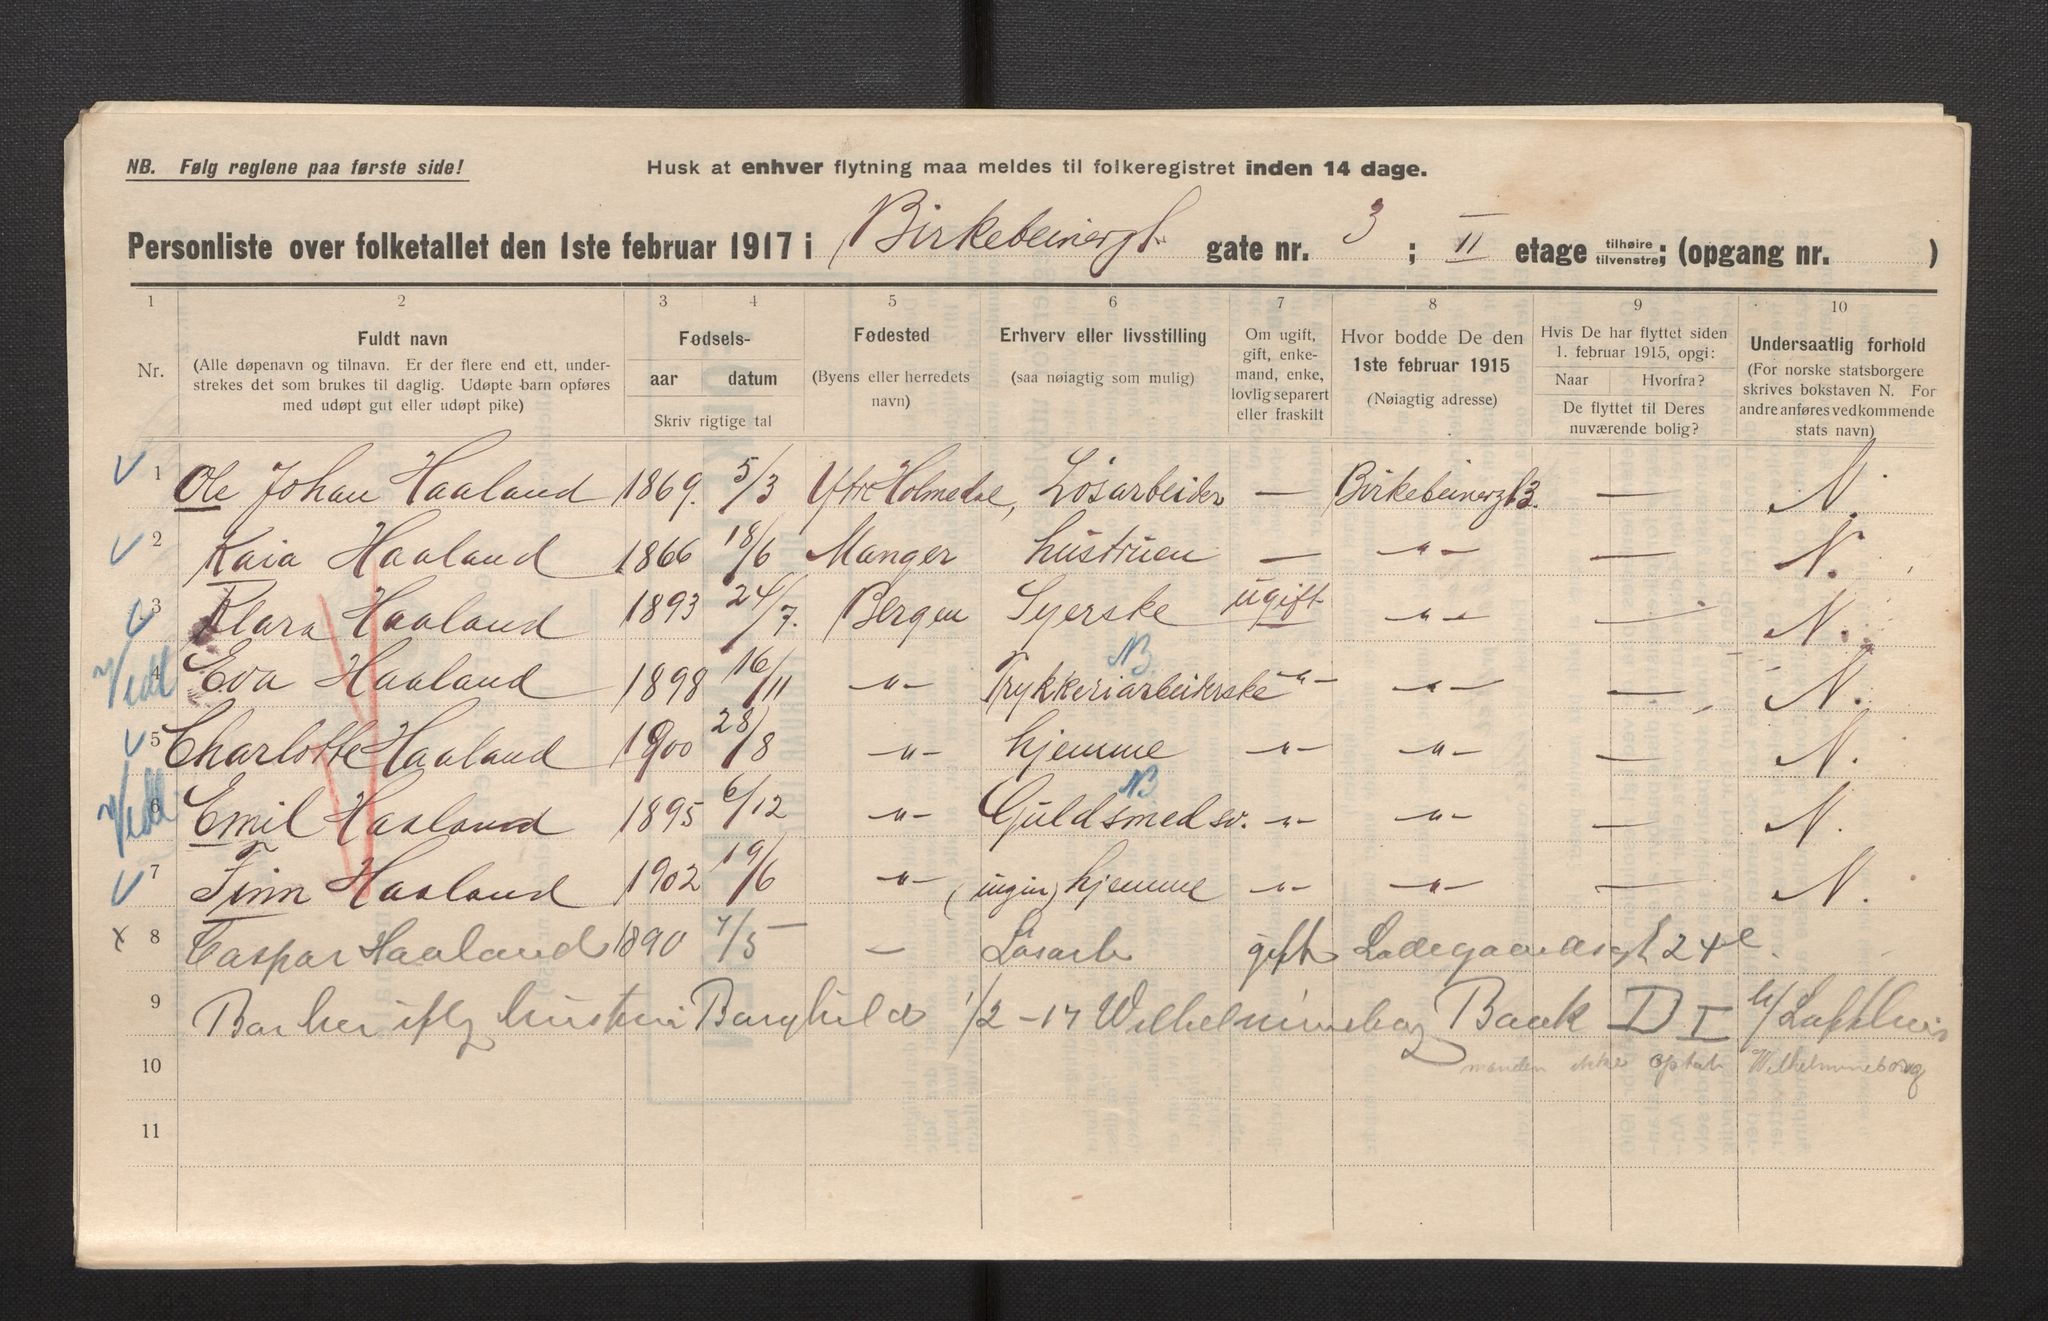 NB. Følg reglene paa første side!
Husk at enhver flytning maa meldes til folkeregistret inden 14 dage.
Personliste over folketallet den 1ste februar 1917 i Birkebeinergt. gate nr. 3 ; II etage tilhøire tilvenstre; (opgang nr. )
1 2 3 4 5 6 7 8 9 10
Nr. Fuldt navn (Alle døpenavn og tilnavn. Er der flere end ett, understrekes det som brukes til daglig. Udøpte barn opføres med udøpt gut eller udøpt pike)
Fødsels- aar datum Skriv rigtige tal
Fødested (Byens eller herredets navn)
Erhverv eller livsstilling (saa nøiagtig som mulig)
Om ugift, gift, enkemand, enke, lovlig separert eller fraskilt
Hvor bodde De den 1ste februar 1915 (Nøiagtig adresse)
Hvis De har flyttet siden 1. februar 1915, opgi: Naar Hvorfra? De flyttet til Deres nuværende bolig?
Undersaatlig forhold (For norske statsborgere skrives bokstaven N. For andre anføres vedkommende stats navn)
1 Ole Johan Haaland 1869. 5/3 Ytre Holmedal, Løsarbeider — Birkebeinergt 3. — N.
2 Kaia Haaland 1866 18/6 Manger hustruen — -"- — N.
3 Klara Haaland 1893 24/7. Bergen Syerske ugift -"- — N.
NB.
4 Eva Haaland 1898 16/11 -"- Trykkeriarbeiderske -"- -"- — N.
5 Charlotte Haaland 1900 28/8 -"- hjemme -"- -"- — N.
NB.
6 Emil Haaland 1895 6/12 -"- Guldsmedsv. -"- -"- — N.
7 Finn Haaland 1902 19/6 -"- (ingin) hjemme -"- -"- — N.
x 8 Caspar Haaland 1890 7/5 — Løsarb gift Ladegaardsgt 24
9 Bor her iflg hustru Borghild 1/2-17 Wilhelmineborg Baak D I
10 manden ikke optat Wilhelmineborg
11